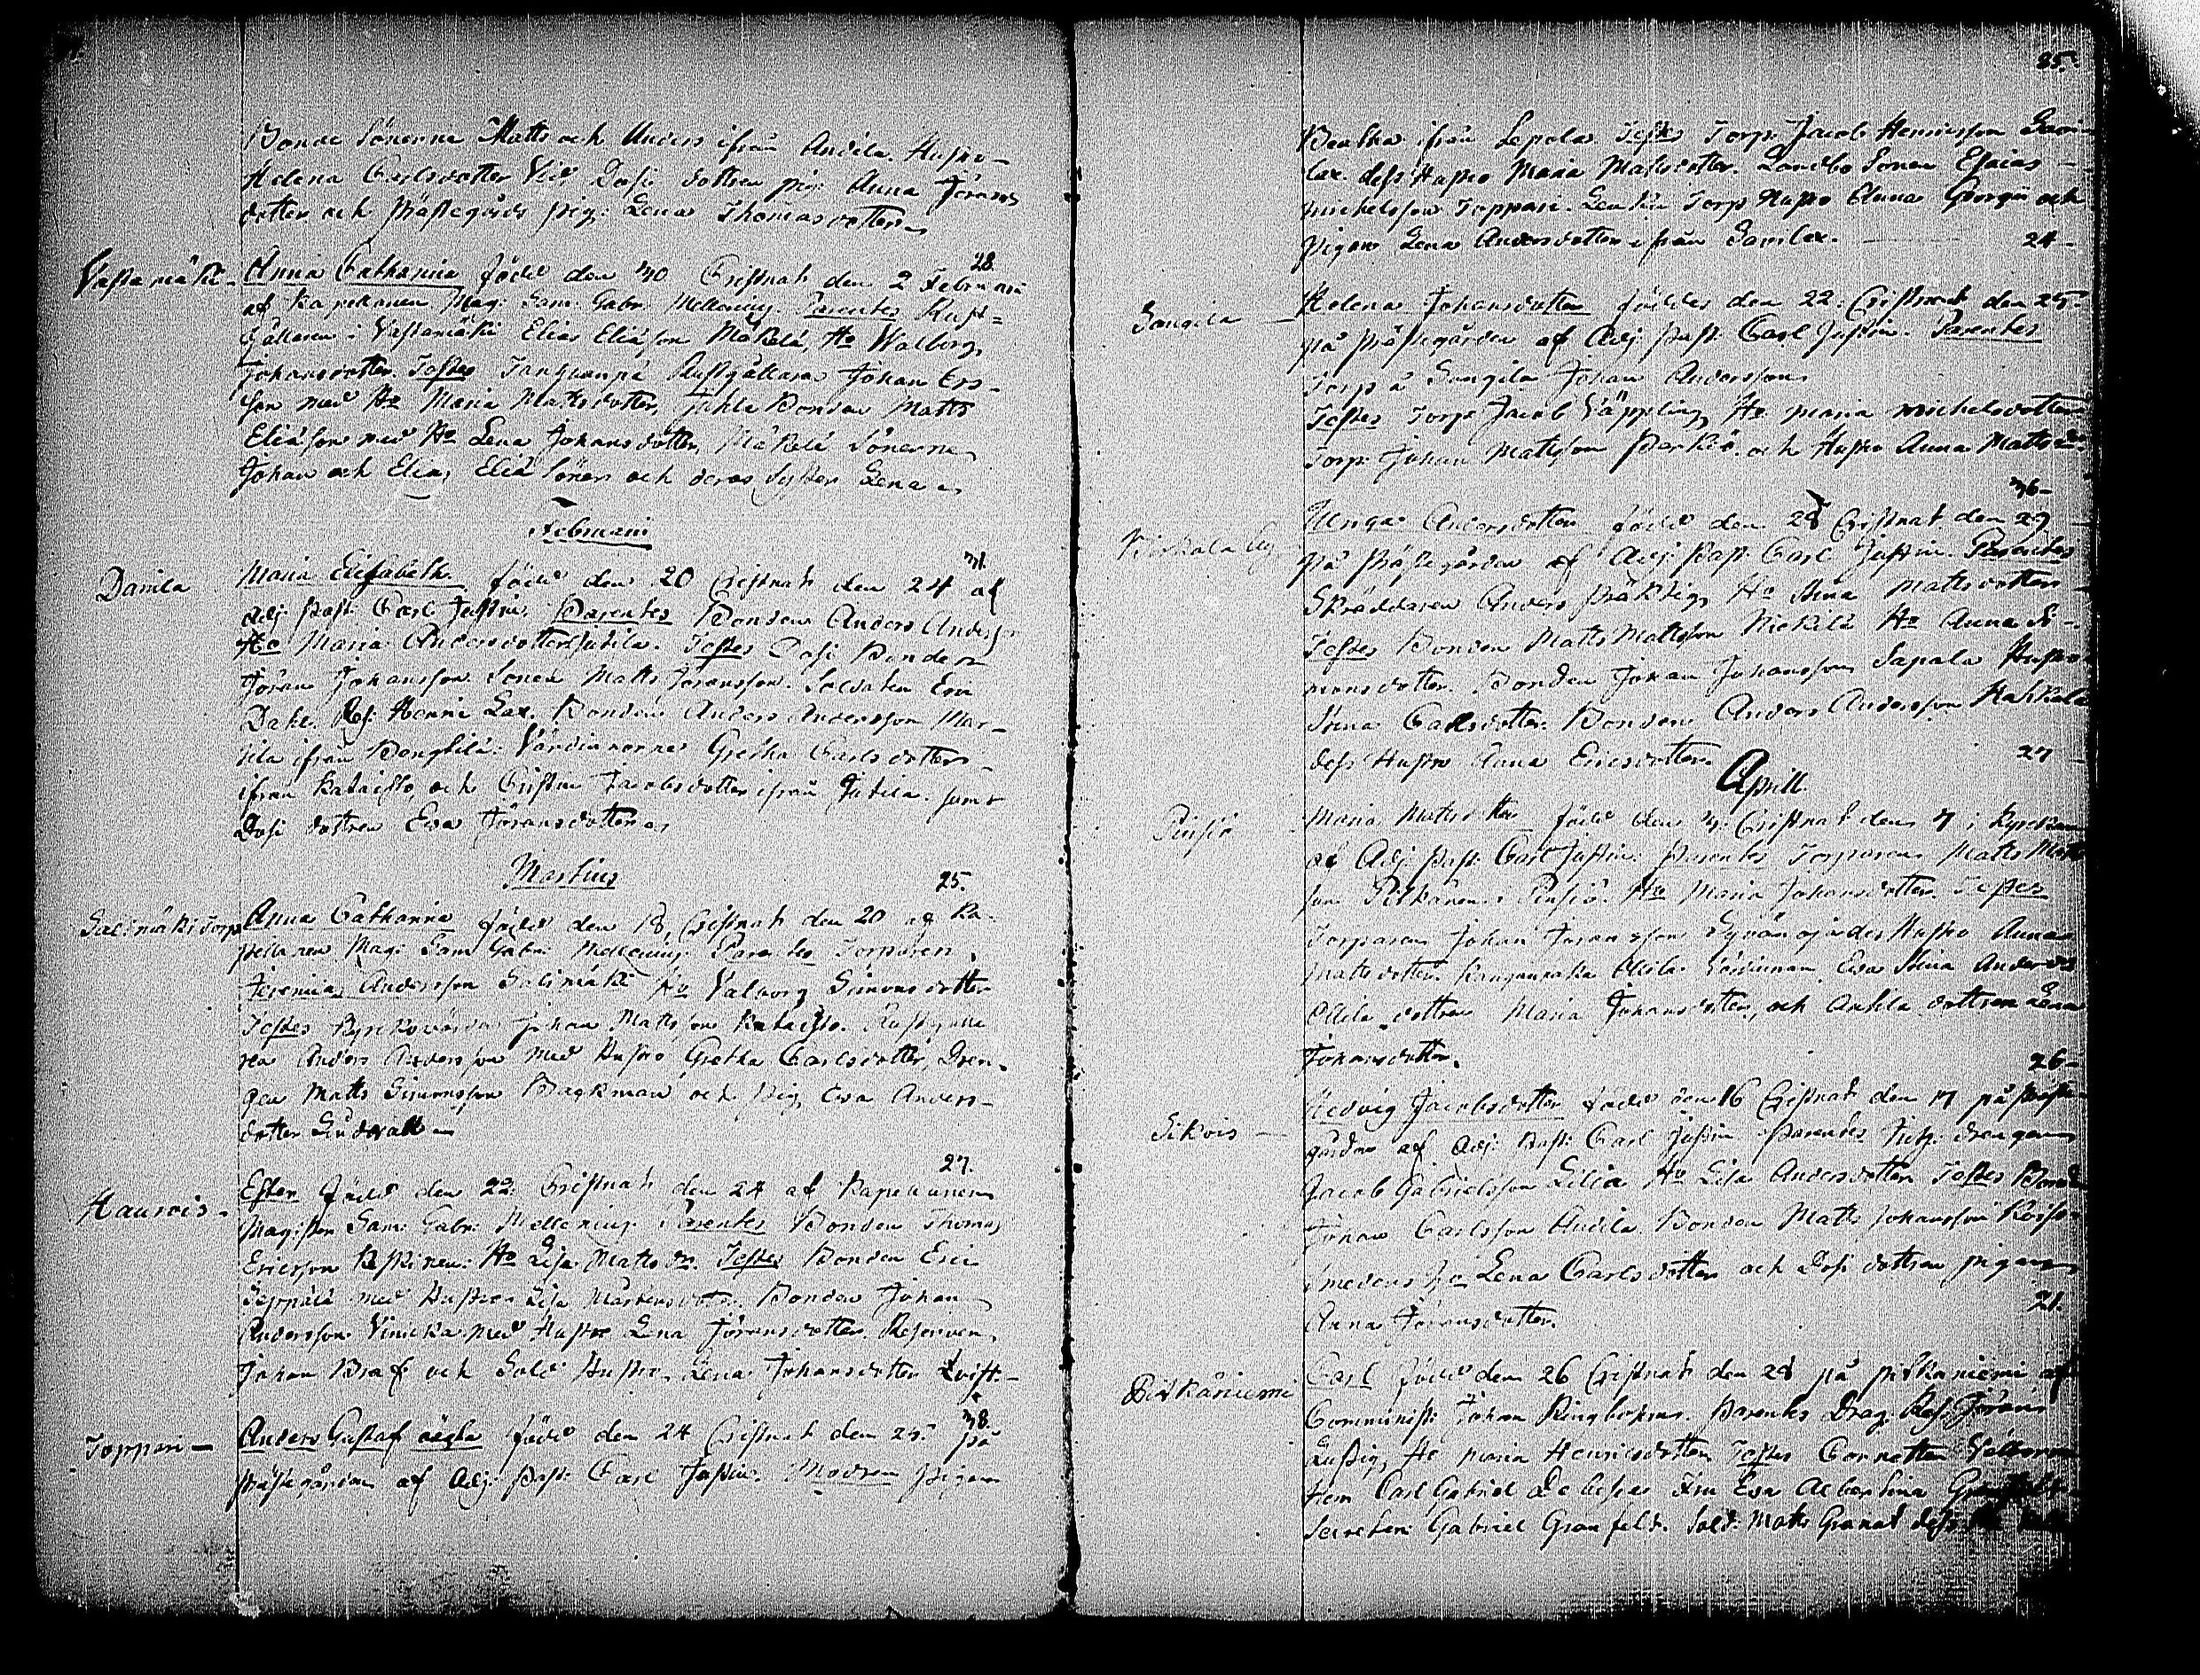 Bonde Sönerna Matts och Anders ifrån Anäila. Hustro
Helena Carlsdotter Dasi dottren pig: Anna Jörans
dotter och Prästegårds pig: Lena Thomasdotter
28.
Vastamäki Anna Catharina född den 30 Cristnat den 2 Februarii
af Kapellanen Mag: Sam: Gabr: Mellenius. Parentes Rust=
hållaren i Vastamäki Elias Eliæson Mäkelä, Ho Walborg
Johansdotter. Testes Rusthållaren Johan Ers-
son med Ho Maria Mattsdotter, Juhla Bonden Matts
Eliæson med Ho Lena Johansdotter, Mäkelä Sönerna
Johan och Elias Eliæ Söner och deras Syster Lena
Februarii
31.
Danila Maria Elisabeth född den 20 Cristnat den 24 af
Adj: Past: Carl Justin. Parentes Bonden Anders Anderss
Ho Maria Andersdotter Jutila. Testes Dasi Bonden
Jöran Johansson Sonen Matts Jöransson. Soldaten Eric
Dahl. Henric Lax. Bonden Anders Andersson Mar-
tila ifrån Bengtilä. Värdinnorna Gretha Carlsdotter
ifrån Kataisto, och Cristin Jacobsdotter ifrån Jutila. samt
Dasi dottren Eva Jöransdotter
Martius
25.
Salimäki Torp Anna Catharina född den 18 Cristnat den 20 af Ka-
pellanen Mag: Sam: Gabr: Mellenius. Parentes Torparen
Jeremias Andersson Salimäki Ho Valborg Simonsdotter
Testes Kyrkovärden Johan Mattsson Kataisto. Rusthålla
ren Anders Andersson med Hustro Gretha Carlsdotter, Dren-
gen Matts Simonsson Backman och Pig: Eva Anders-
dotter
27.
Haurois Ester född den 22 Cristnat den 24 af Kapellanen
Magister Sam: Gabr: Mellenius. Parentes Bonden Thomas
Ericsson Keskinen Ho Lisa Matts dr. Testes Bonden Eric
Seppälä med Hustro Lisa Mårtensdotter. Bonden Johan
Andersson Vinicka med Hustro Lena Jöransdotter. Reserven
Johan Braf och Sold: Hustro Lena Johansdotter Qvist.
38.
Toppari Anders Gustaf oägta född den 24 Cristnat den 25 på
Prästegården af Adj: Past: Carl Justin. Modren Pigan
25.
Beatha ifrån Lepola. Testes Torp: Jacob Henricsson Savi
lax. dess Hustro Maria Mattsdotter. Landbo Sonen Esaias
Michelsson Toppari. Torp Hustro Anna Georgii och
Pigan Lena Andersdotter ifrån Savilax.
24
Sangila Helena Johansdotter föddes den 22 Cristnat den 25
på Prästegården af Adj: Past: Carl Justin. Parentes
Torp: å Sangila Johan Andersson
Testes Torp: Jacob Väppling Ho Maria Michelsdotter
Torp: Johan Mattsson Perkiö. och Hustro Anna Mattsdr
36
Kirkala by Ulrica Andersdotter född den 28 Cristnat den 29
på Prästegården af Adj: Past: Carl Justin. Parentes
Skräddaren Anders Präktig Ho Stina Mattsdotter
Testes Bonden Matts Mattsson Nickilä Ho Anna Si-
monsdotter. Bonden Johan Johansson Sapala Hustro
Stina Carlsdotter. Bonden Anders Andersson Hahkala
dess Hustro Anna Ericsdotter
27
Aprill.
Pinsiö Maria Mattsdotter född den 3 Cristnat den 7 i Kyrckan
af Adj: Past: Carl Justin. Parentes Torparen Matts Matts
son Pitkänen i Pinsiö. Ho Maria Johansdotter. Testes
Torparen Johan Jöransson dess Hustro Anna
Mattsdotter. Värdinnan Eva Stina Andersdr
Ollila dottren Maria Johansdotter, och Anttila dottren Lena
Johansdotter.
26
Sikois Hedvig Jacobsdotter född den 16 Cristnat den 17 på Präste
gården af Adj: Past: Carl Justin Parentes drengen
Jacob Gabrielsson Lilia Ho Lisa Andersdotter Testes Bonde
Johan Carlsson Anäila Bonden Matts Johansson
Smedens Ho Lena Carlsdotter och Dasi dottren pigan
Anna Jöransdotter.
21.
Pitkäniemi Carl född den 26 Cristnat den 28 på Pitkäniemi af
Comminist: Johan Ringbohm. Parentes Drag: Res: Jöran
Rustig Ho Maria Henricsdotter Testes Cornetten Välboren
Herr Carl Gabriel De Besche Fru Eva Albertina Granfelt
Secreter: Gabriel Granfelt. Sold: Matts Granat dess